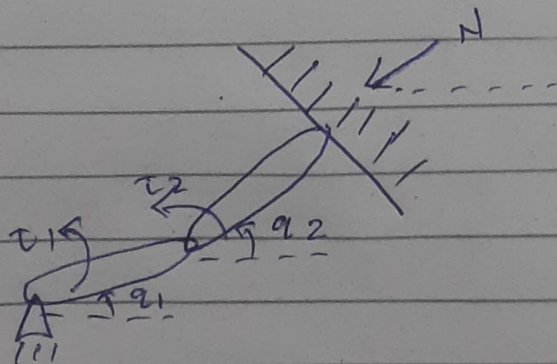 N
τ2
q2
τ1
q1